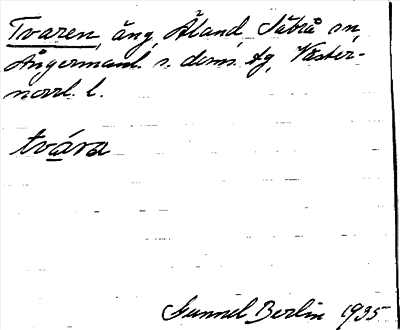 Tvaren, äng, Åland, Säbrå sn,
Ångermanl. s. doms. fg, Väster-
norrl. l.
tvára
Gunnel Berlin 1935